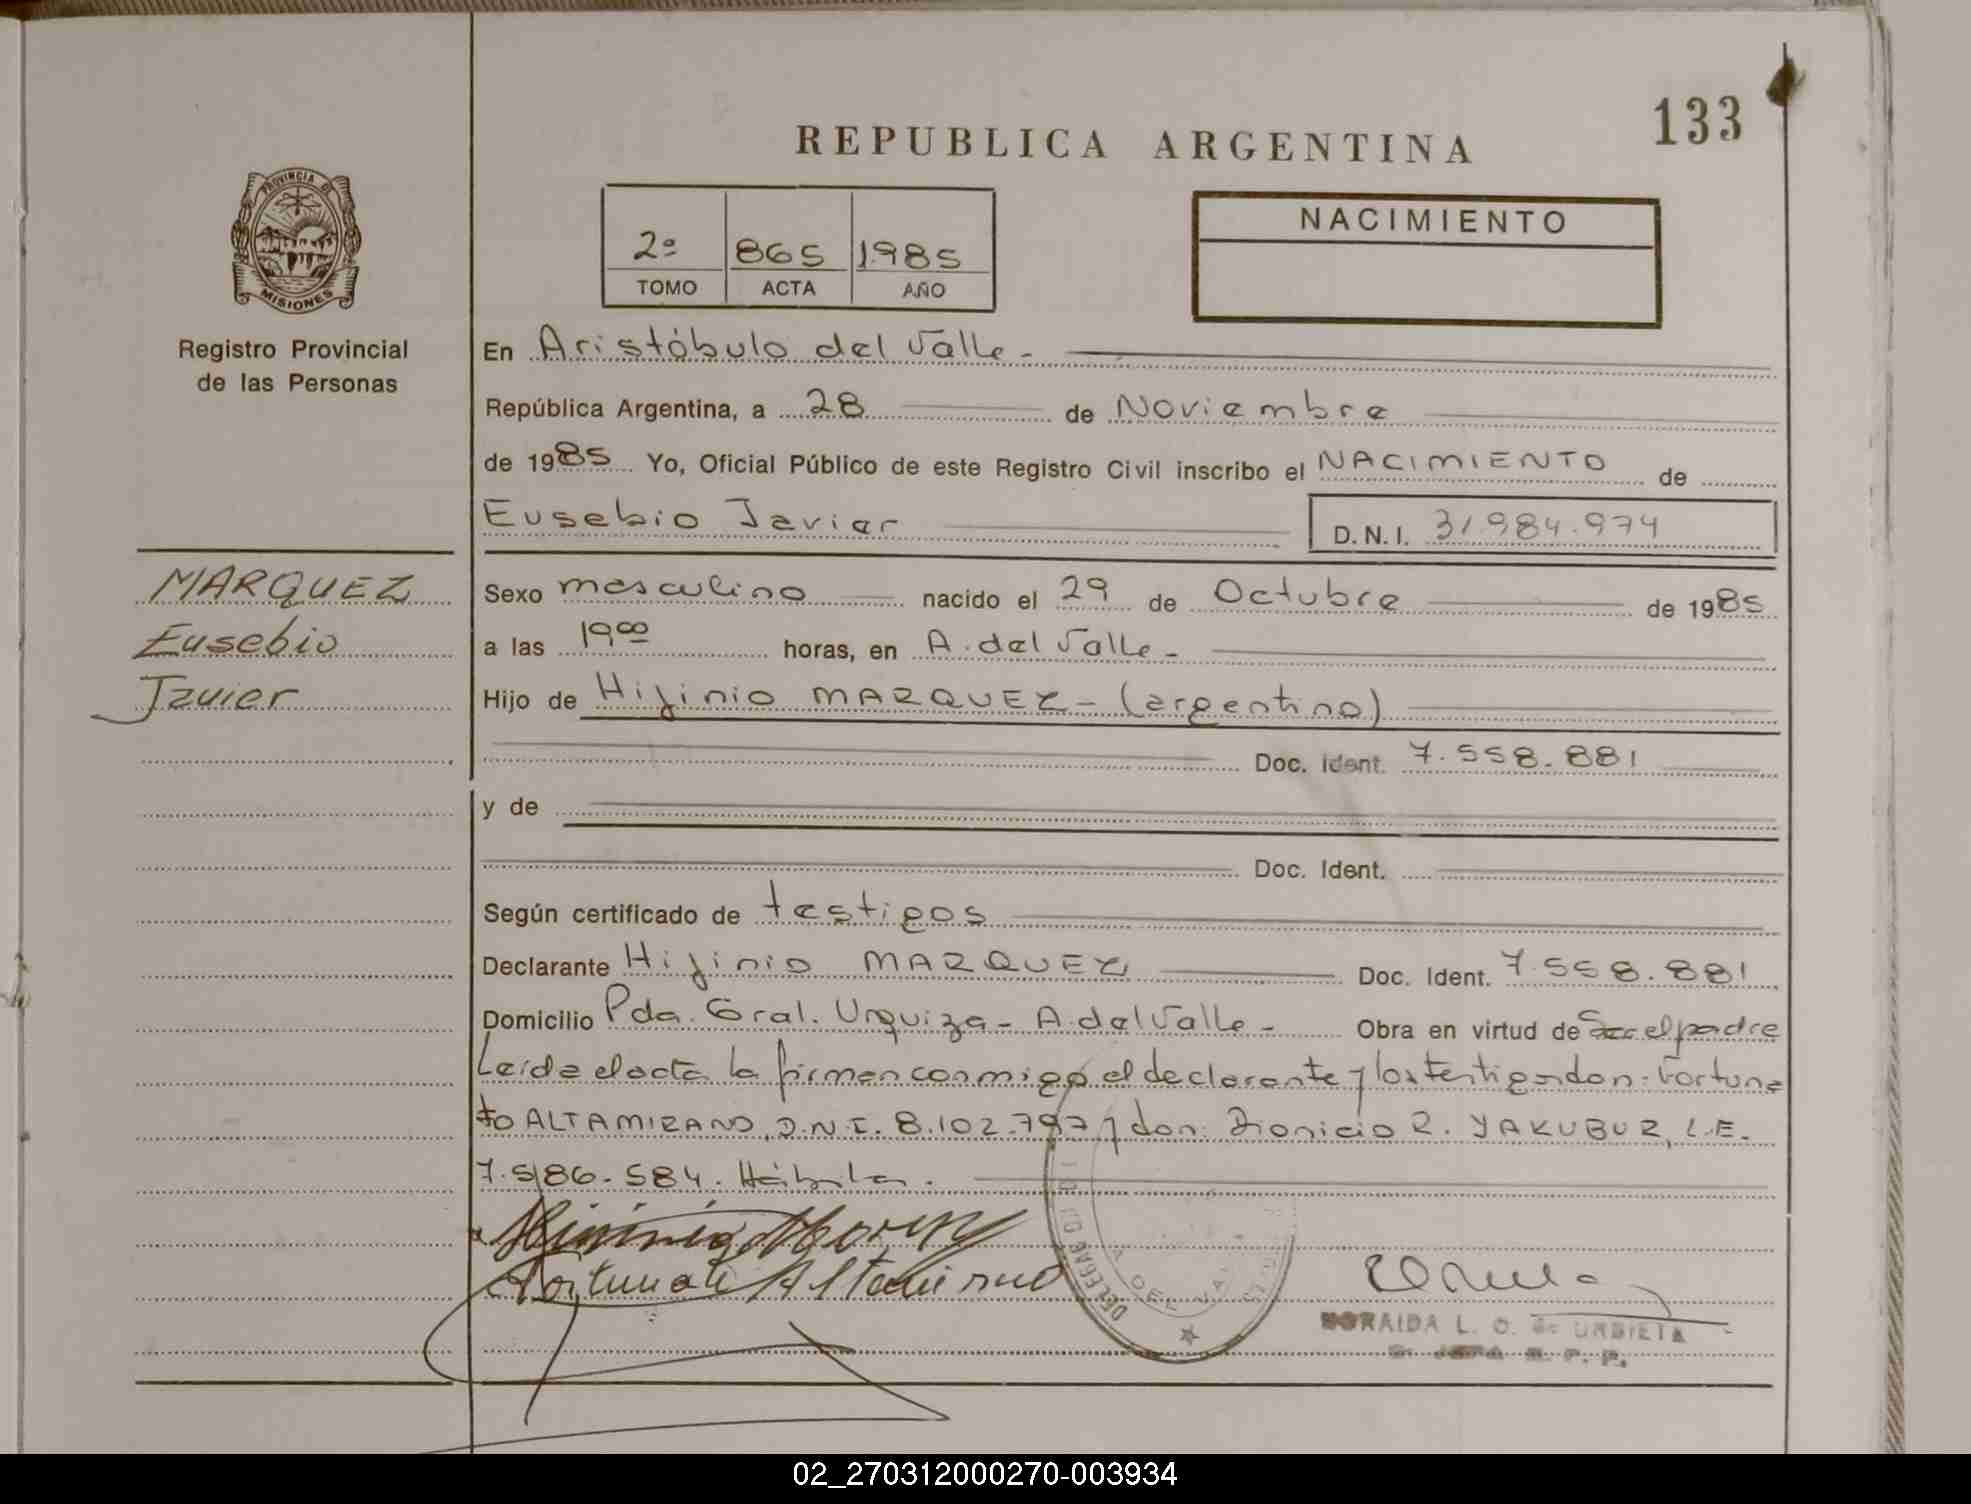 133
REPUBLICA ARGENTINA
PROVINCIA DE
MISIONES
2º 865 1985
TOMO ACTA AÑO
NACIMIENTO
Registro Provincial
de las Personas
En Aristóbulo del Valle -
República Argentina, a 28 de Noviembre
de 1985 Yo, Oficial Público de este Registro Civil inscribo el NACIMIENTO de
Eusebio Javier D.N.I. 31.984.974
MARQUEZ
Eusebio
Javier
Sexo masculino nacido el 29 de Octubre de 1985
a las 19 00 horas, en A. del Valle -
Hijo de Hijinio MARQUEZ - (argentino)
Doc. Ident. 7.558.881
y de
Doc. Ident.
Según certificado de testigos
Declarante Hijinio MARQUEZ Doc. Ident. 7.558.881
Domicilio Pda. Gral. Urquiza - A. del Valle - Obra en virtud de Ser el padre
Leida el acta la firman conmigo el declarante y los testigos don: Fortuna
to ALTAMIRANO, D.N.I. 8.102.797 y don: Dionicio R. YAKUBUR, L.E.
7.586.584. Hábiles.
Fortunato Altamirano
DELEGACION
DEL VAL
NORAIDA L. O. de URBIETA
R. P. P.
02_270312000270-003934